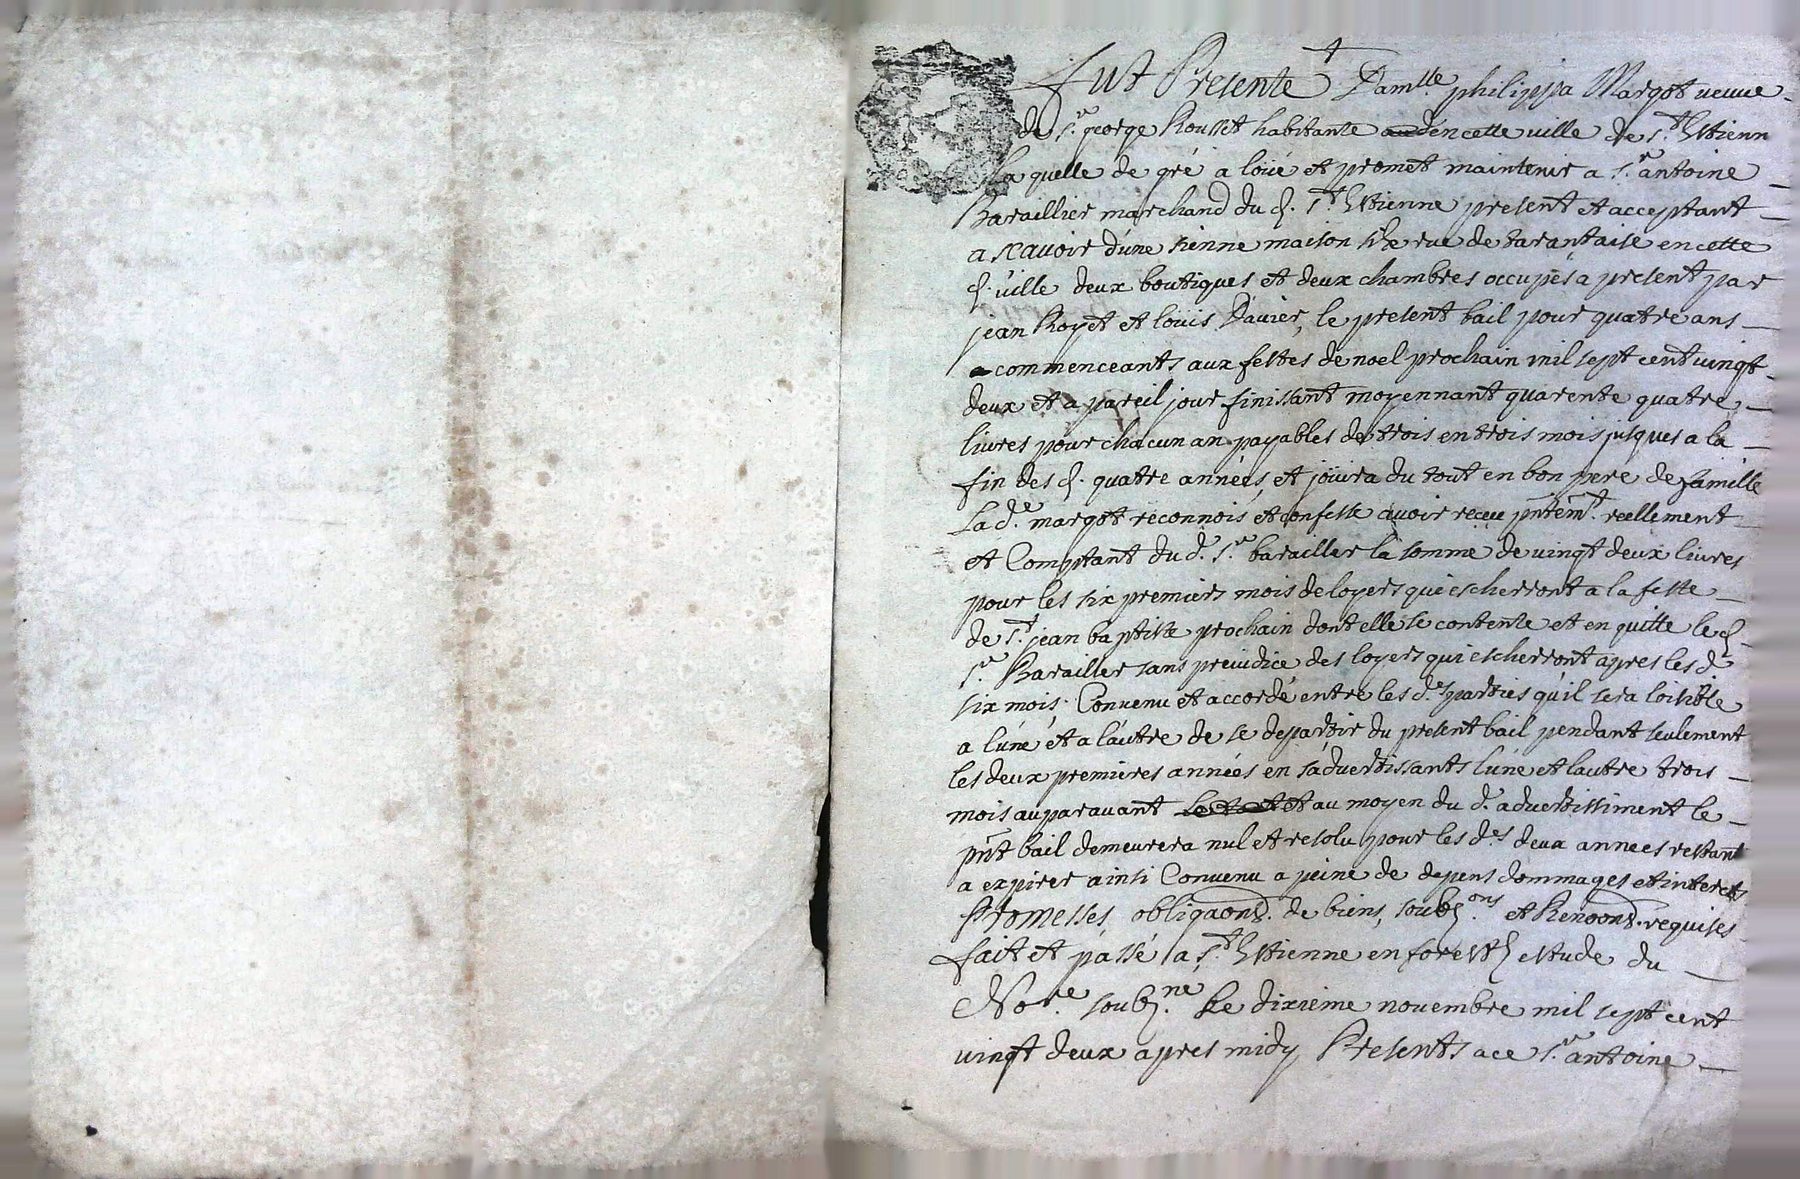 fut Presente Dam.lle philippa Margot veuve
de s.r george Rousset habitante dencette ville de s.t Estienn
la quelle de gré a loüé et promet maintenir a s.r antoine
Baraillier marchand du d. s.t Estienne present et acceptant
a scavoir d'une sienne maison size rue de tarantaise en cette
d. ville deux boutiques et deux chambres occupés a present par
jean Royet et loüis Davier, le present bail pour quatre ans
commenceants aux festes de noel prochain mil sept cent vingt
deux et a pareil jour finissant moyennant quarente quatre
livres pour chacun an payables de trois en trois mois jusques a la
fin des d. quatre années, et joüira du tout en bon pere de famille
La d.e margot reconnois et confesse avoir receu pntem.t reellement
et Comptant du d. s.r barailler la somme de vingt deux livres
pour les six premiers mois de loyers qui escherront a la feste
de s.t jean baptiste prochain dont elle se contente et en quitte le d.
s.r Barailler sans prejudice des loyers qui escherront apres les d.
six mois. Convenu et accordé entre les d.es parties qu'il sera loisible
a lúne et a láutre de se departir du present bail pendant seulement
les deux premieres années en s'advertissants lúne et lautre trois
mois auparavant et au moyen du d. advertissiment le
pnt bail demeurera nul et resolu pour les d.es deux annees restant
a expirer ainsi Convenu a peine de depens dommages et interets
Promesses, obligaons. de biens, soub.ons et Renoons. requises
fait et passé a s.t Estienne en forest estude du
No.re soub.né Le dixieme novembre mil sept cent
vingt deux apres midy Presents a ce s.r antoine